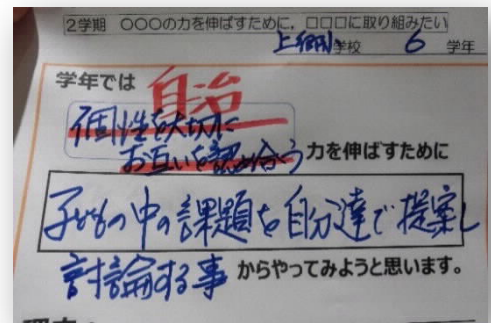 2学期 〇〇〇の力を伸ばすために，□□□に取り組みたい
上郷小学校 6 学年
学年では 自治
個性を大切に
お互いを認め合う 力を伸ばすために
子どもの中の課題を自分達で提案し
討論する事 からやってみようと思います。